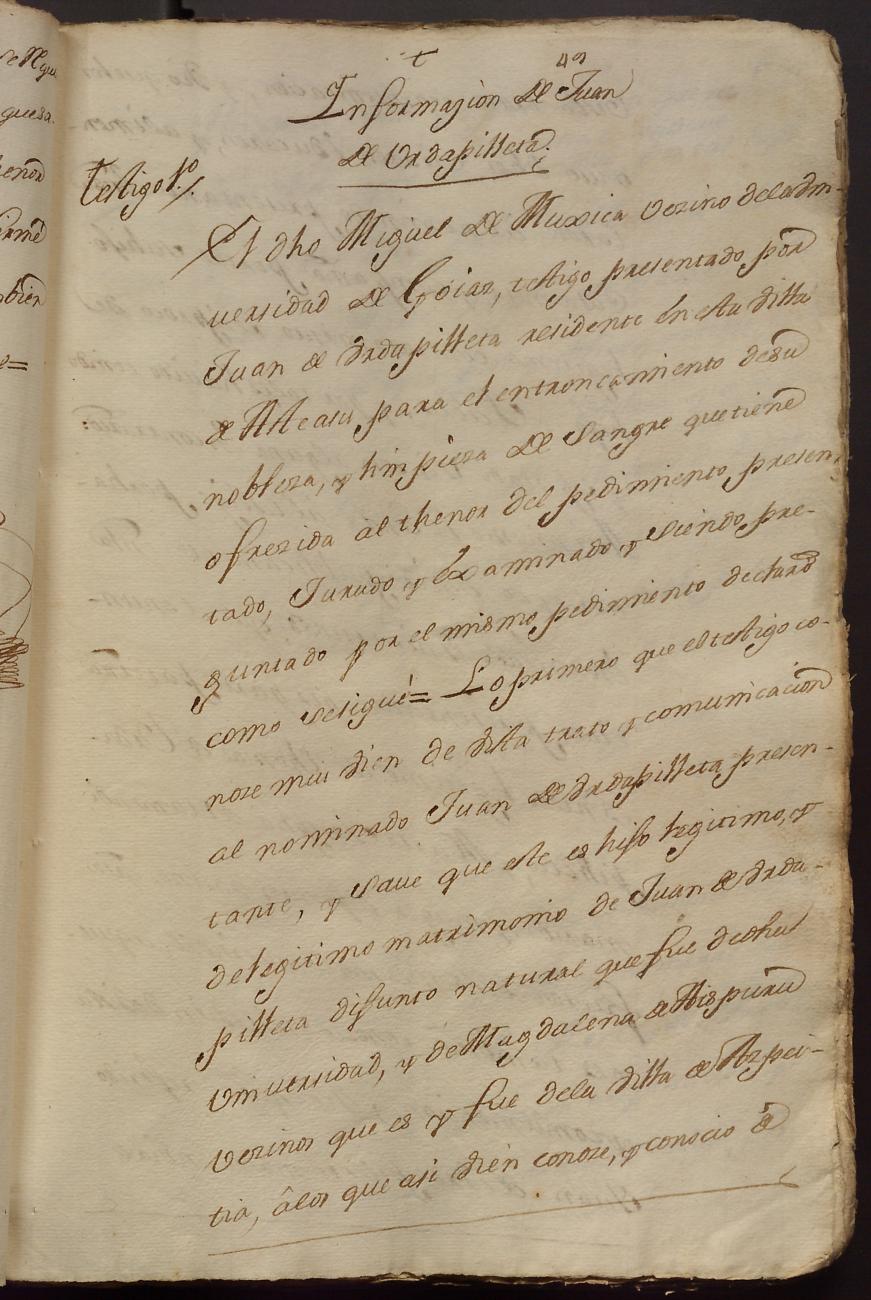 t
49
Informazion de Juan
de Urdapilleta.
testigo 1º.
El dho Miguel de Muxica vezino dela Vni-
uersidad de Goiaz, testigo presentado por
Juan de Vrdapilleta residente en esta Villa
de Alcaiz para el entroncamiento de su
nobleza, y limpieza de Sangre que tiene
ofrezida al thenor del pedimiento presen-
tado, Jurado y Examinado y siendo pre-
guntado por el mismo pedimiento declaró
como sesigue= Lo primero que el testigo co-
noze mui vien de vista trato y comunicación
al nominado Juan de Vrdapilleta presen-
tante, y Saue que este es hijo legitimo, y
de legitimo matrimonio de Juan de Vrda-
pilleta difunto natural que fue de dha
Vniuersidad, y de Magdalena de Aispuru
vezinos que es y fue dela Villa de Azpei-
tia, â los que asi vien conoze, y conocio â